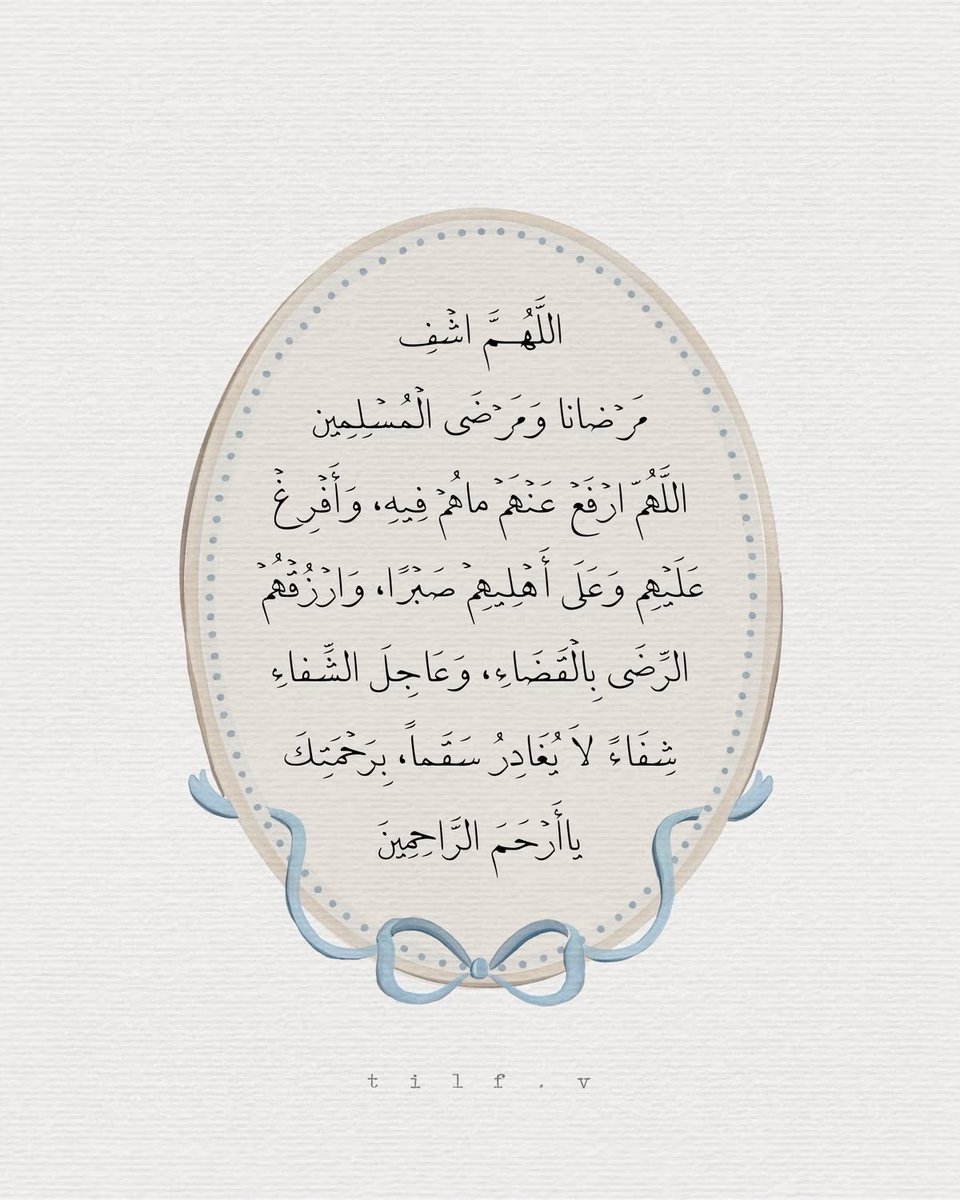 اللَّهُمَّ اشْفِ
مَرْضانا وَمَرْضَى الْمُسْلِمِين
اللَّهُمّ ارْفَعْ عَنْهَمْ ماهُمْ فِيهِ، وَأَفْرِغْ
عَلَيْهِم وَعَلَى أَهْلِيهِمْ صَبْرًا، وَارْزُقْهُمْ
الرِّضَى بِالْقَضَاءِ، وَعَاجِلَ الشِّفاءِ
شِفَاءً لاَ يُغَادِرُ سَقَماً، بِرَحْمَتِكَ
ياأَرْحَمَ الرَّاحِمِينَ
tilf.v